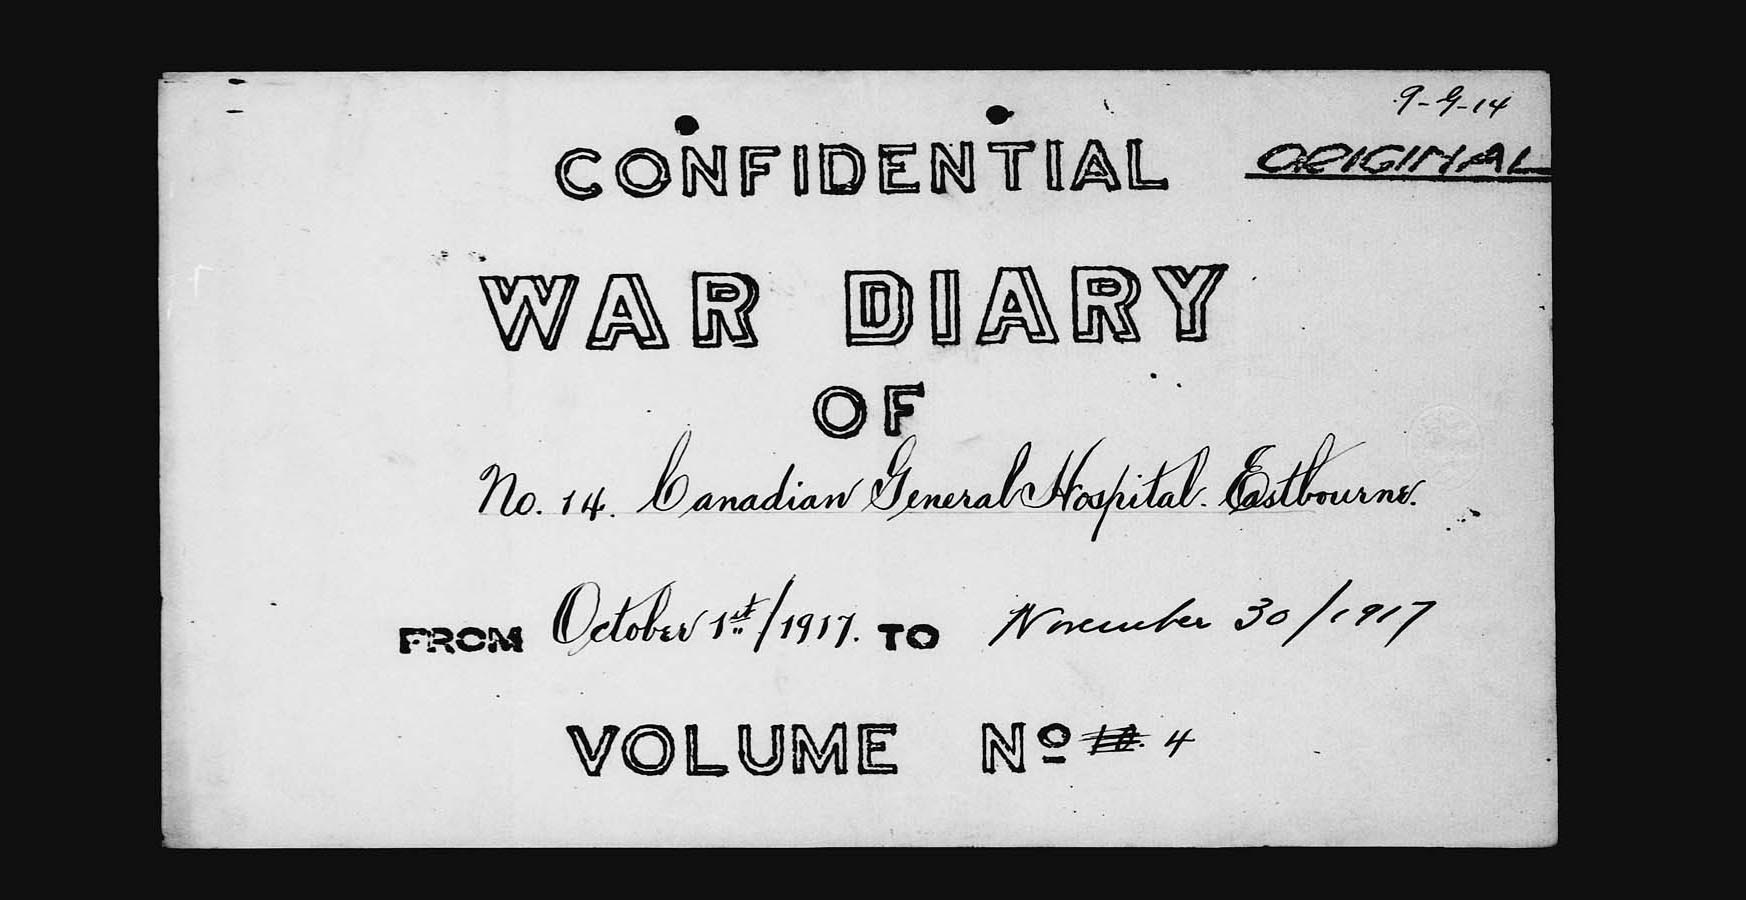 9-9-14
ORIGINAL
CONFIDENTIAL
WAR DIARY
OF
No. 14. Canadian General Hospital. Eastbourne.
FROM October 1st/1917. TO November 30/1917
VOLUME No 4